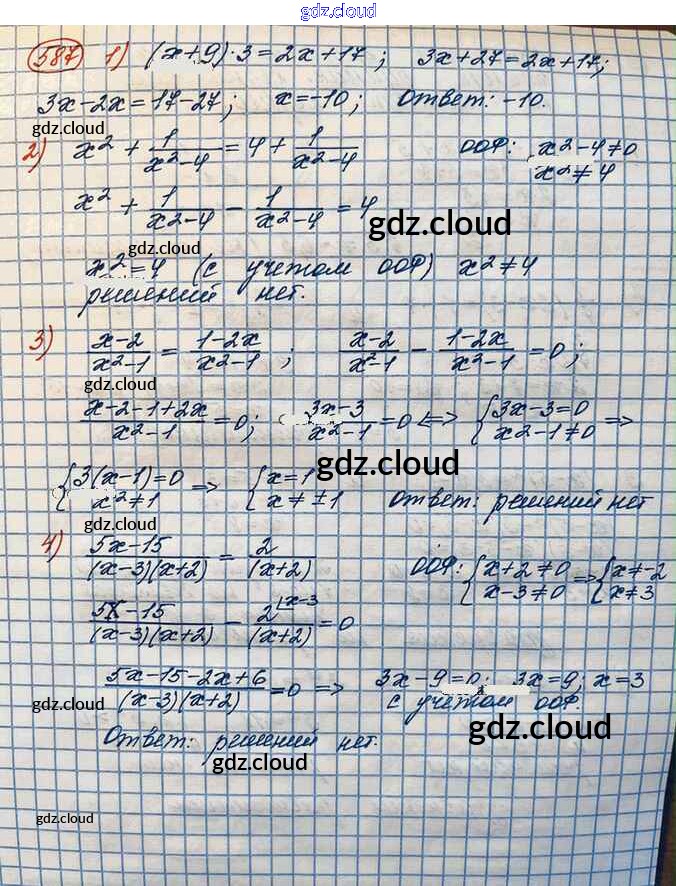 gdz.cloud
gdz.cloud
587 1) (x+9)·3=2x+17; 3x+27=2x+17;
3x-2x=17-27; x=-10; Ответ: -10.
gdz.cloud
2) x² + 1/(x²-4) = 4 + 1/(x²-4) ООФ: x²-4≠0
x²≠4
x² + 1/(x²-4) - 1/(x²-4) = 4
gdz.cloud
gdz.cloud
x²=4 (с учетом ООФ) x²≠4
решений нет.
3) (x-2)/(x²-1) = (1-2x)/(x²-1); (x-2)/(x²-1) - (1-2x)/(x²-1) = 0;
gdz.cloud
(x-2-1+2x)/(x²-1) = 0; (3x-3)/(x²-1) = 0 <=> {3x-3=0 =>
x²-1≠0
gdz.cloud
{3(x-1)=0 => {x=1
x²≠1 x≠±1 Ответ: решений нет
gdz.cloud
4) (5x-15)/((x-3)(x+2)) = 2/(x+2) ООФ: {x+2≠0 => {x≠-2
x-3≠0 x≠3
(5x-15)/((x-3)(x+2)) - 2/(x+2) = 0
x-3
(5x-15-2x+6)/((x-3)(x+2)) = 0 => 3x-9=0; 3x=9; x=3
gdz.cloud
с учетом ООФ.
gdz.cloud
Ответ: решений нет.
gdz.cloud
gdz.cloud